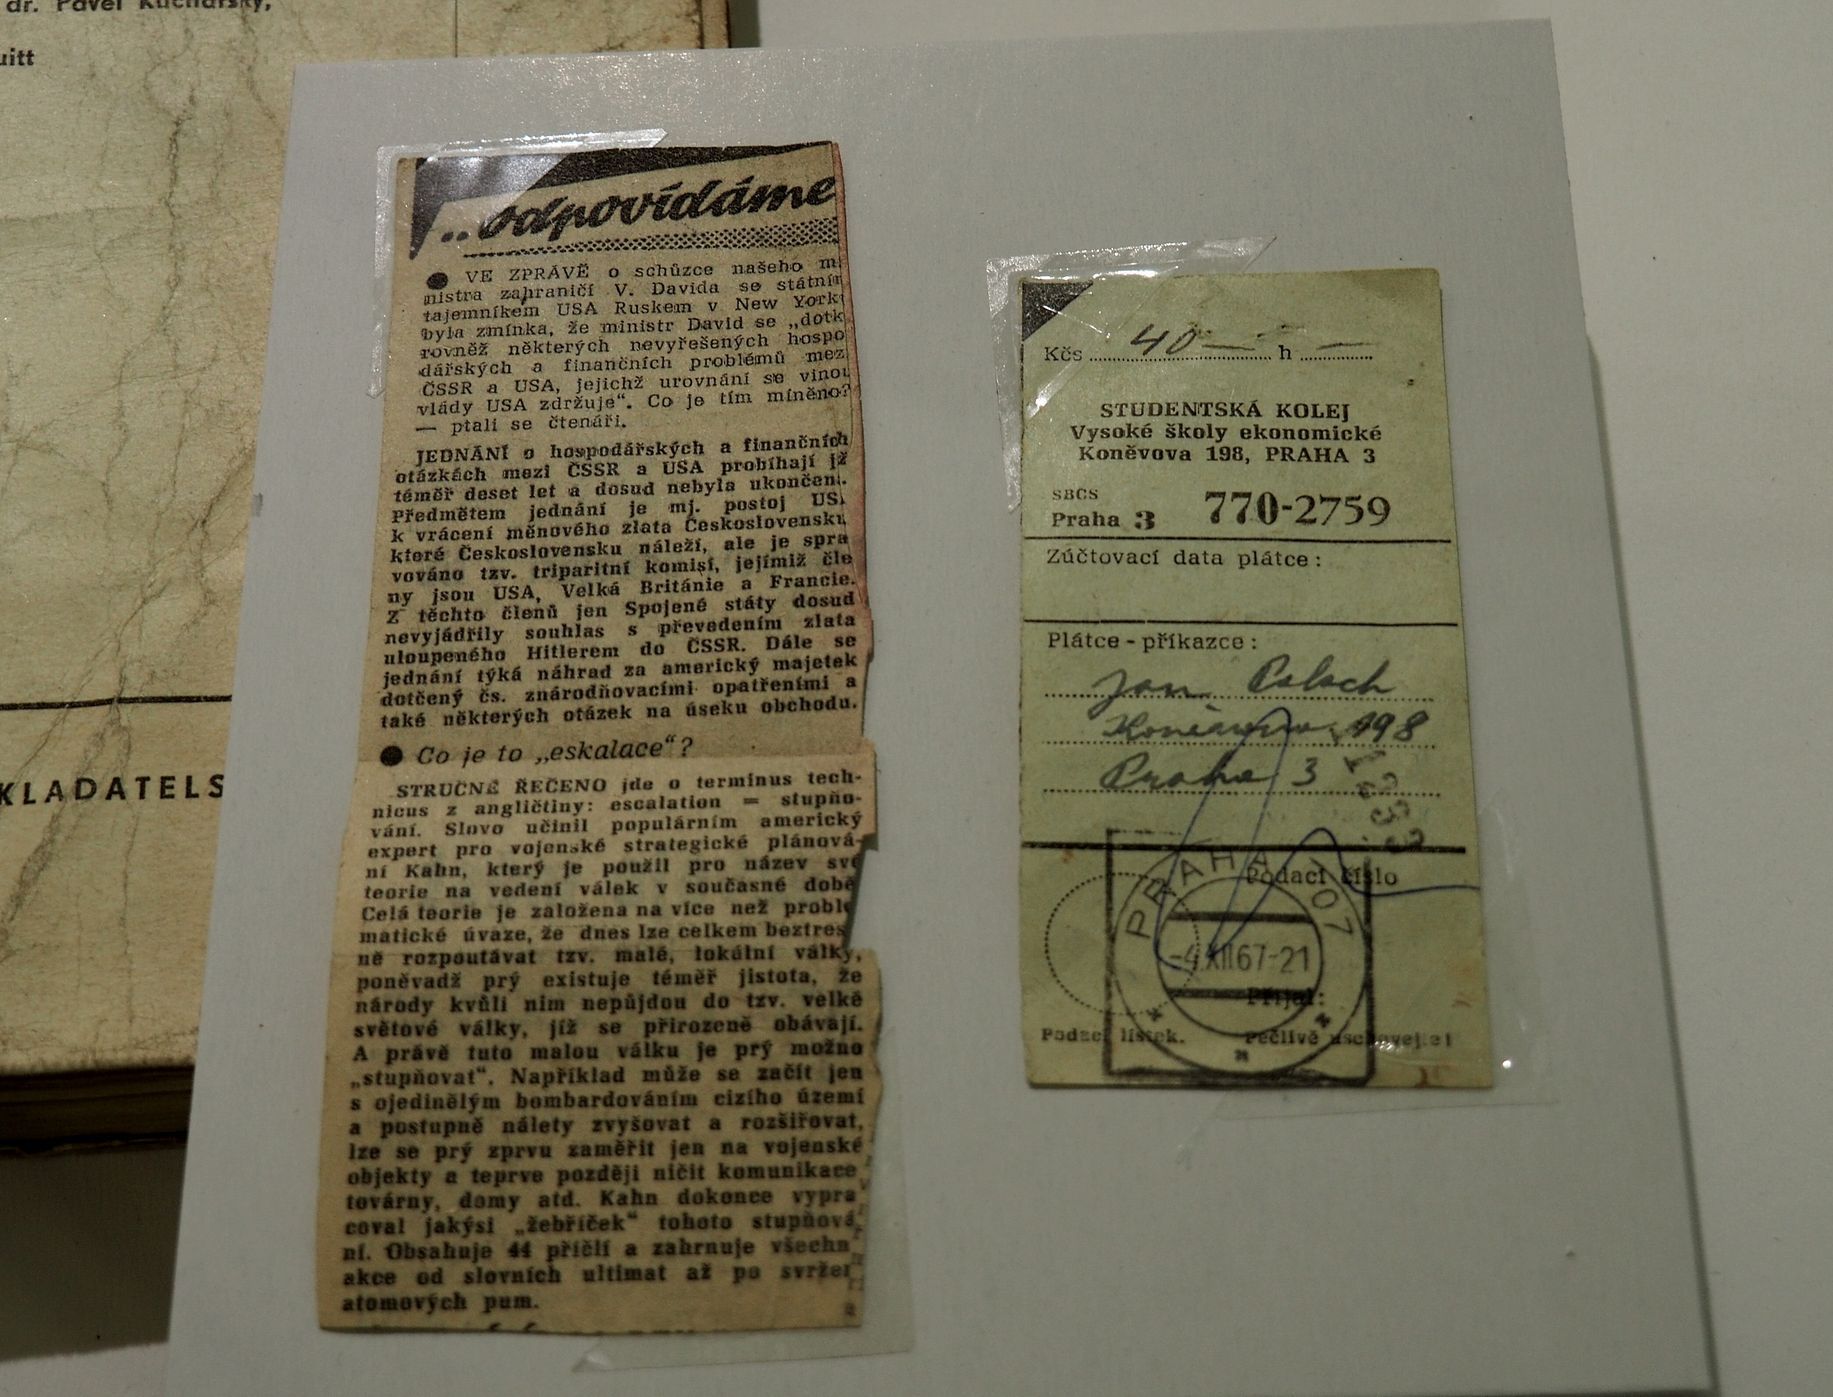 dr. Pavel Kuchařský,
uitt
KLADATELS
..odpovídáme
● VE ZPRÁVĚ o schůzce našeho mi
nistra zahraničí V. Davida se státním
tajemníkem USA Ruskem v New York
byla zmínka, že ministr David se „dotk
rovněž některých nevyřešených hospo
dářských a finančních problémů mez
ČSSR a USA, jejichž urovnání se vinou
vlády USA zdržuje“. Co je tím míněno?
— ptali se čtenáři.
JEDNÁNÍ o hospodářských a finančních
otázkách mezi ČSSR a USA probíhají již
téměř deset let a dosud nebyla ukončena.
Předmětem jednání je mj. postoj USA
k vrácení měnového zlata Československu,
které Československu náleží, ale je spra
vováno tzv. triparitní komisí, jejímiž čle
ny jsou USA, Velká Británie a Francie.
Z těchto členů jen Spojené státy dosud
nevyjádřily souhlas s převedením zlata
uloupeného Hitlerem do ČSSR. Dále se
jednání týká náhrad za americký majetek
dotčený čs. znárodňovacími opatřeními a
také některých otázek na úseku obchodu.
● Co je to „eskalace“?
STRUČNĚ ŘEČENO jde o terminus tech-
nicus z angličtiny: escalation = stupňo-
vání. Slovo učinil populárním americký
expert pro vojenské strategické plánová-
ní Kahn, který je použil pro název své
teorie na vedení válek v současné době
Celá teorie je založena na více než proble
matické úvaze, že dnes lze celkem beztrest
ně rozpoutávat tzv. malé, lokální války,
poněvadž prý existuje téměř jistota, že
národy kvůli nim nepůjdou do tzv. velké
světové války, jíž se přirozeně obávají.
A právě tuto malou válku je prý možno
„stupňovat“. Například může se začít jen
s ojedinělým bombardováním cizího území
a postupně nálety zvyšovat a rozšiřovat,
lze se prý zprvu zaměřit jen na vojenské
objekty a teprve později ničit komunikace
továrny, domy atd. Kahn dokonce vypra
coval jakýsi „žebříček“ tohoto stupňová
ní. Obsahuje 44 příčlí a zahrnuje všechn
akce od slovních ultimat až po svržen
atomových pum.
Kčs 40 — h —
STUDENTSKÁ KOLEJ
Vysoké školy ekonomické
Koněvova 198, PRAHA 3
SBČS
Praha 3 770-2759
Zúčtovací data plátce:
Plátce - příkazce:
Jan Palach
Koněvova 198
Praha 3
Podací číslo
PRAHA 07
-4.XII67-21
Přijal:
Podací lístek. Pečlivě uschovejte!